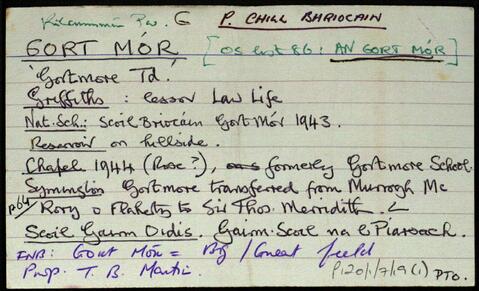 Kilcummin Par. G P. CHILL BHRIOCAIN
GORT MÓR [OS List 86: AN GORT MÓR]
'Gortmore Td.'
Griffiths: lessor Law Life
Nat. Sch.: Scoil Briocáin Gort Mór 1943.
Reservoir on hillside.
Chapel 1944 (Rosc?), formerly Gortmore School.
Symington Gortmore transferred from Murrogh Mc
p64/ Rory O Flaherty to Sir Thos. Merridith.
Scoil Gairm Oidis. Gairm: Scoil na bPiarsach.
FNB: Gort Mór = Big/Great field
Prop. T. B. Martin.
P120/1/7/19(1) PTO.